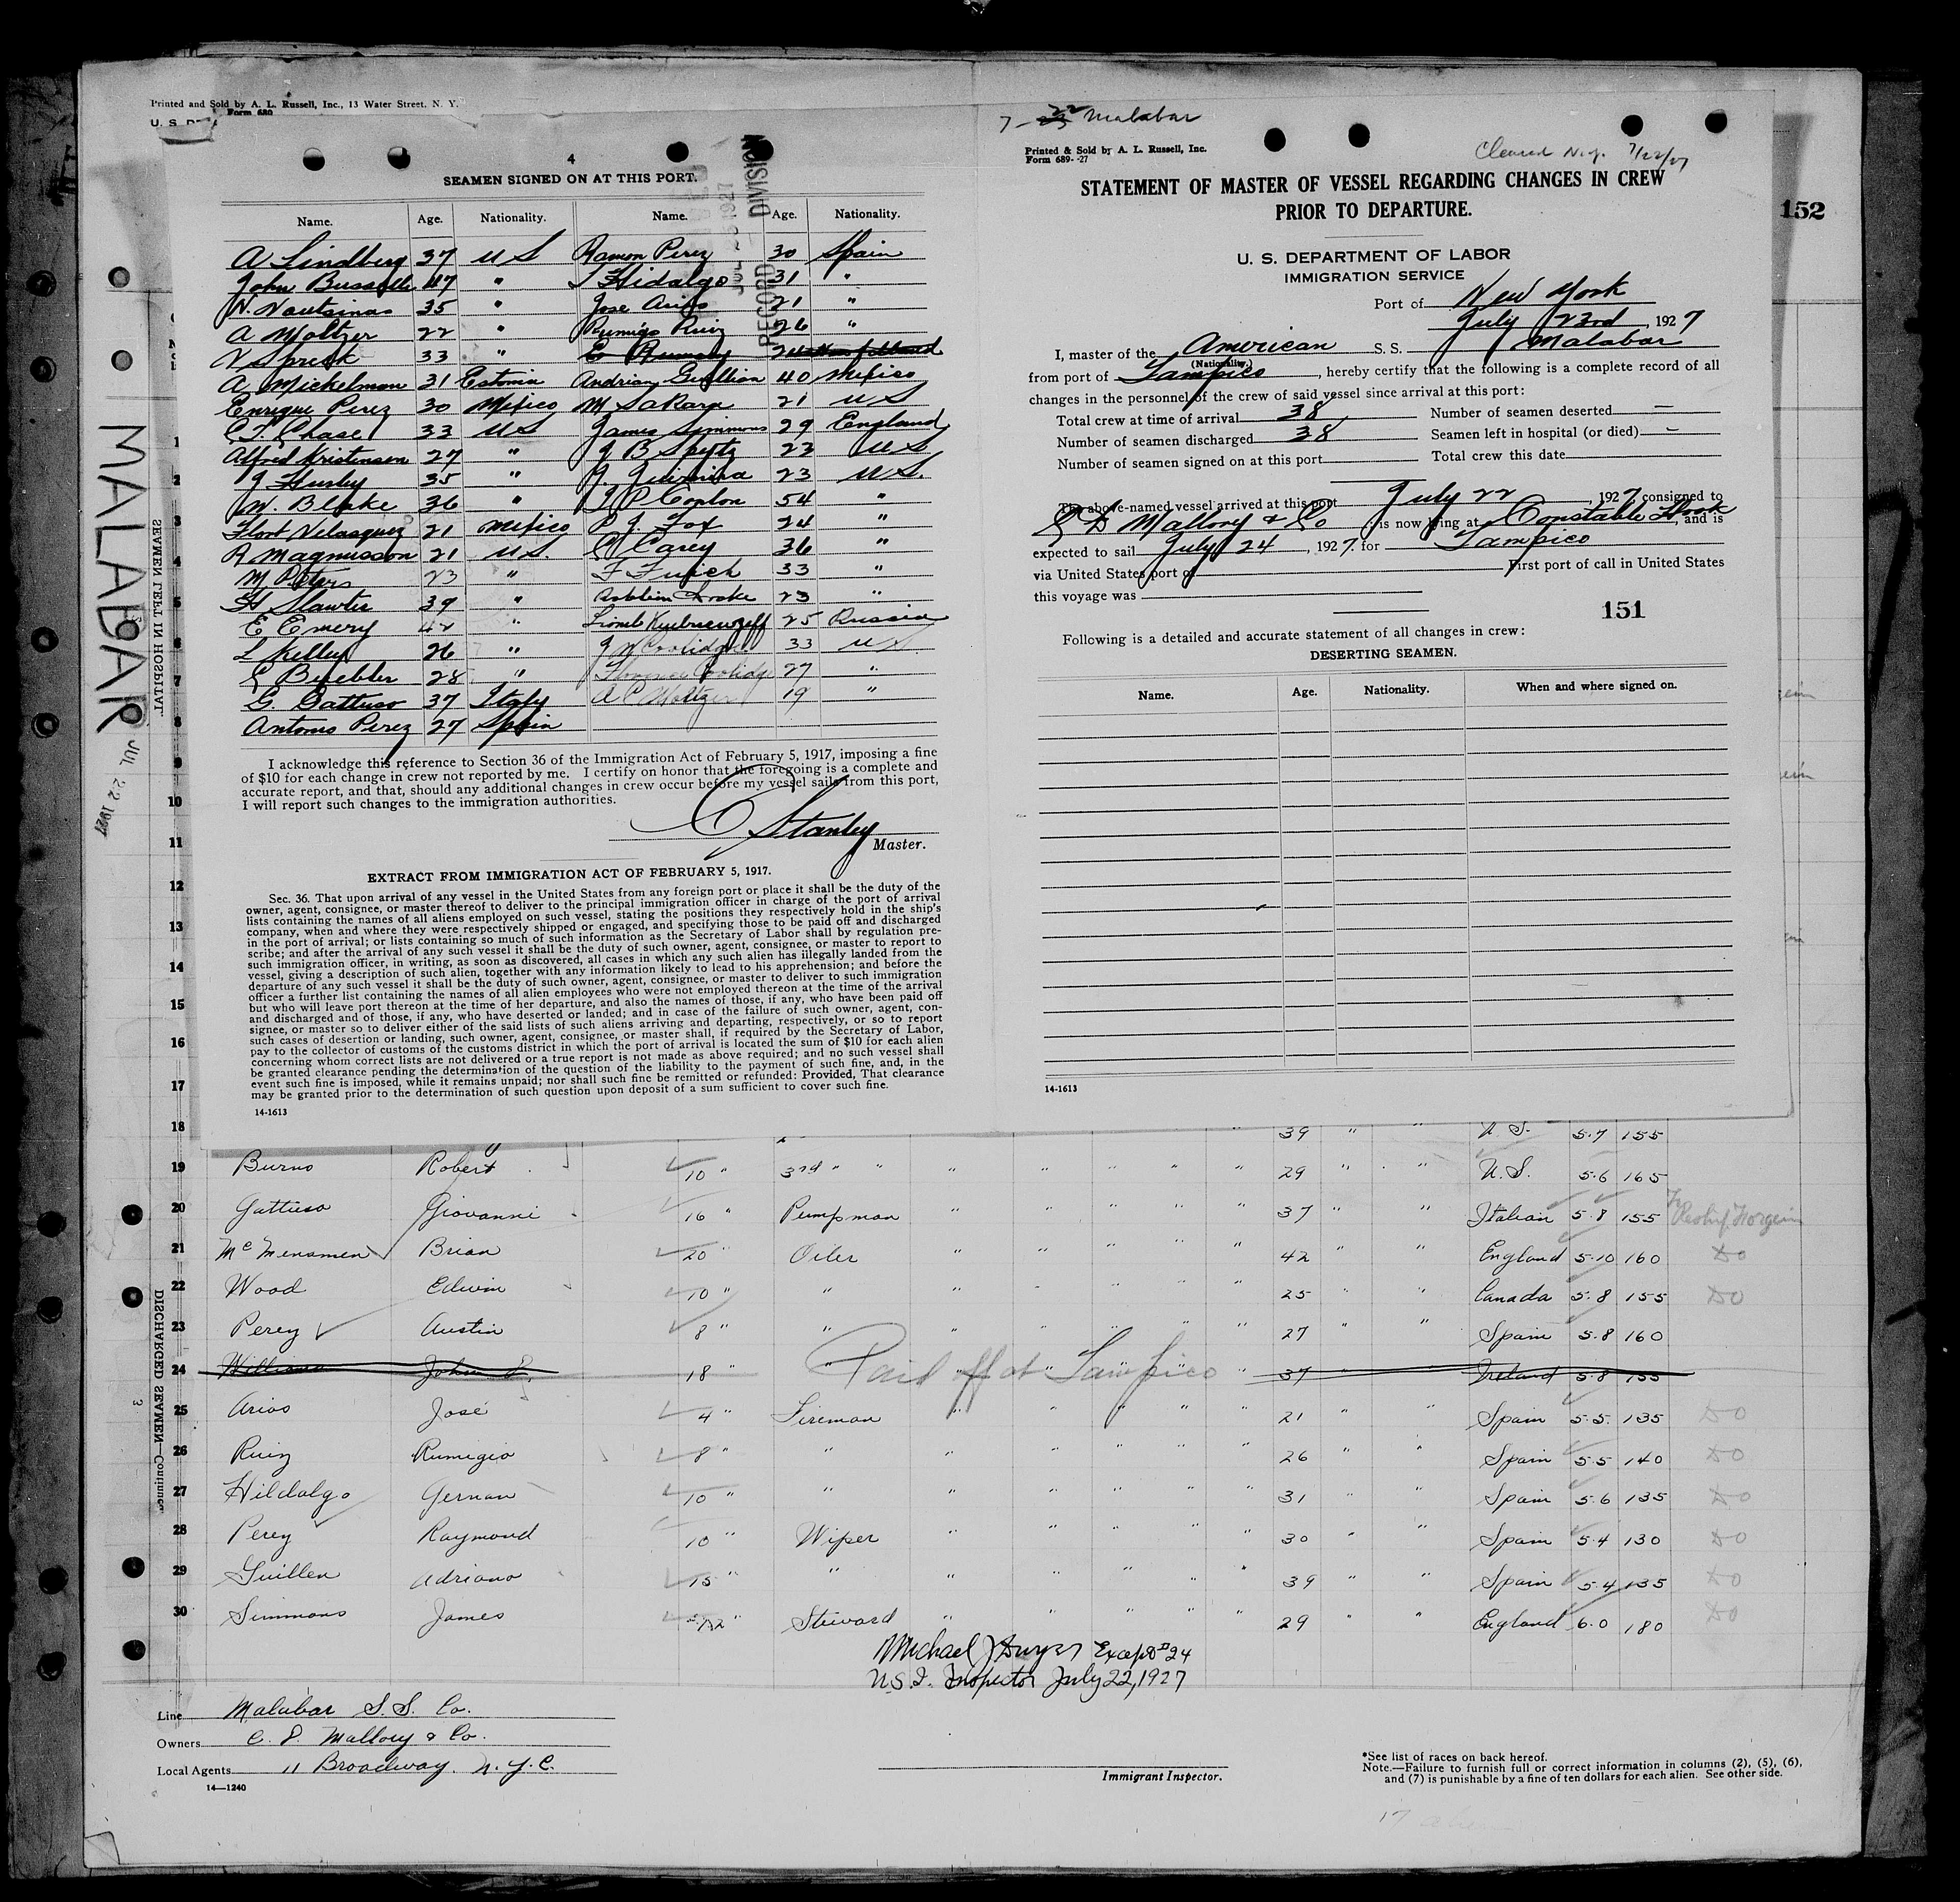 Printed and Sold by A. L. Russell, Inc., 13 Water Street, N. Y.
Form 680
4
SEAMEN SIGNED ON AT THIS PORT.
Name. Age. Nationality. Name. Age. Nationality.
A Lindberg 37 U S Ramon Perez 30 Spain
John 47 " Hidalgo 31 "
N. 35 " Jose Arias 21 "
A Moltzer 22 " Rumigo Ruiz 26 "
33 "
A Mickelman 31 Estonia Andrian 40 Mexico
Enrique Perez 30 Mexico M Sakara 21 U S
Chase 33 U S James Simmons 29 England
Alfred Kristensen 27 " J B 23 U S
35 " J. 23 U S.
W. Blake 36 " 54 "
Velasquez 21 Mexico P J. Fox 24 "
R Magnusson 21 U S. C Carey 36 "
M Peters 23 " F 33 "
H Slawter 39 " Drake 23 "
E Emery 42 " 25 Russia
L Kelley 26 " J W Coolidge 33 U S
28 " Coolidge 27 "
G. Gattuso 37 Italy A C Moltzer 19 "
Antonio Perez 27 Spain
I acknowledge this reference to Section 36 of the Immigration Act of February 5, 1917, imposing a fine
of $10 for each change in crew not reported by me. I certify on honor that the foregoing is a complete and
accurate report, and that, should any additional changes in crew occur before my vessel sails from this port,
I will report such changes to the immigration authorities.
C Stanley
Master.
EXTRACT FROM IMMIGRATION ACT OF FEBRUARY 5, 1917.
Sec. 36. That upon arrival of any vessel in the United States from any foreign port or place it shall be the duty of the
owner, agent, consignee, or master thereof to deliver to the principal immigration officer in charge of the port of arrival
lists containing the names of all aliens employed on such vessel, stating the positions they respectively hold in the ship's
company, when and where they were respectively shipped or engaged, and specifying those to be paid off and discharged
in the port of arrival; or lists containing so much of such information as the Secretary of Labor shall by regulation pre-
scribe; and after the arrival of any such vessel it shall be the duty of such owner, agent, consignee, or master to report to
such immigration officer, in writing, as soon as discovered, all cases in which any such alien has illegally landed from the
vessel, giving a description of such alien, together with any information likely to lead to his apprehension; and before the
departure of any such vessel it shall be the duty of such owner, agent, consignee, or master to deliver to such immigration
officer a further list containing the names of all alien employees who were not employed thereon at the time of the arrival
but who will leave port thereon at the time of her departure, and also the names of those, if any, who have been paid off
and discharged and of those, if any, who have deserted or landed; and in case of the failure of such owner, agent, con-
signee, or master so to deliver either of the said lists of such aliens arriving and departing, respectively, or so to report
such cases of desertion or landing, such owner, agent, consignee, or master shall, if required by the Secretary of Labor,
pay to the collector of customs of the customs district in which the port of arrival is located the sum of $10 for each alien
concerning whom correct lists are not delivered or a true report is not made as above required; and no such vessel shall
be granted clearance pending the determination of the question of the liability to the payment of such fine, and, in the
event such fine is imposed, while it remains unpaid; nor shall such fine be remitted or refunded: Provided, That clearance
may be granted prior to the determination of such question upon deposit of a sum sufficient to cover such fine.
14-1613
RECORD DIVISION
7-22 Malabar
Printed & Sold by A. L. Russell, Inc.
Form 689- -27
Cleared N.Y. 7/22/27
STATEMENT OF MASTER OF VESSEL REGARDING CHANGES IN CREW
PRIOR TO DEPARTURE.
U. S. DEPARTMENT OF LABOR
IMMIGRATION SERVICE
Port of New York
July 23rd, 1927
I, master of the American S. S. Malabar
(Nationality.)
from port of Tampico, hereby certify that the following is a complete record of all
changes in the personnel of the crew of said vessel since arrival at this port:
Total crew at time of arrival 38 Number of seamen deserted —
Number of seamen discharged 38 Seamen left in hospital (or died) —
Number of seamen signed on at this port Total crew this date
The above-named vessel arrived at this port July 22, 1927 consigned to
C D Mallory & Co, is now lying at Constable Hook, and is
expected to sail July 24, 1927. for Tampico
via United States port of First port of call in United States
this voyage was
151
Following is a detailed and accurate statement of all changes in crew:
DESERTING SEAMEN.
Name. Age. Nationality. When and where signed on.
14-1613
152
MALABAR
JUL 22 1927
SEAMEN LEFT IN HOSPITAL
DISCHARGED SEAMEN—Continued
3
1
2
3
4
5
6
7
8
9
10
11
12
13
14
15
16
17
18 " 39 " " U. S. 5.7 155
19 Burns Robert 10 " 3rd " " " " " " " 29 " " U. S. 5.6 165
20 Gattuso Giovanni 16 " Pumpman " " " " " 37 " " Italian 5.8 155
21 McMensmen Brian 20 " Oiler " " " " " 42 " " England 5.10 160 Do
22 Wood Edwin 10 " " " " " " " 25 " " Canada 5.8 155 Do
23 Perey Austin 8 " " " " " " " 27 " " Spain 5.8 160
24 Williams John P. 18 " " Paid off at Tampico 37 " " Ireland 5.8 155
25 Arias José 4 " Fireman " " " " " 21 " " Spain 5.5. 135 Do
26 Ruiz Rumigio 8 " " " " " " " 26 " " Spain 5.5 140 Do
27 Hildalgo Gernan 10 " " " " " " " 31 " " Spain 5.6 135 Do
28 Perey Raymond 10 " Wiper " " " " " 30 " " Spain 5.4 130 Do
29 Guillen Adriano 15 " " " " " " " 39 " " Spain 5.4 135 Do
30 Simmons James " Steward " " " " " 29 " " England 6.0 180 Do
Michael J Dwyer Except 24
U.S.I. Inspector July 22, 1927
Line Malabar S.S. Co.
Owners C. D. Mallory & Co.
Local Agents 11 Broadway. N.Y.C.
14—1240
Immigrant Inspector.
*See list of races on back hereof.
Note.—Failure to furnish full or correct information in columns (2), (5), (6),
and (7) is punishable by a fine of ten dollars for each alien. See other side.